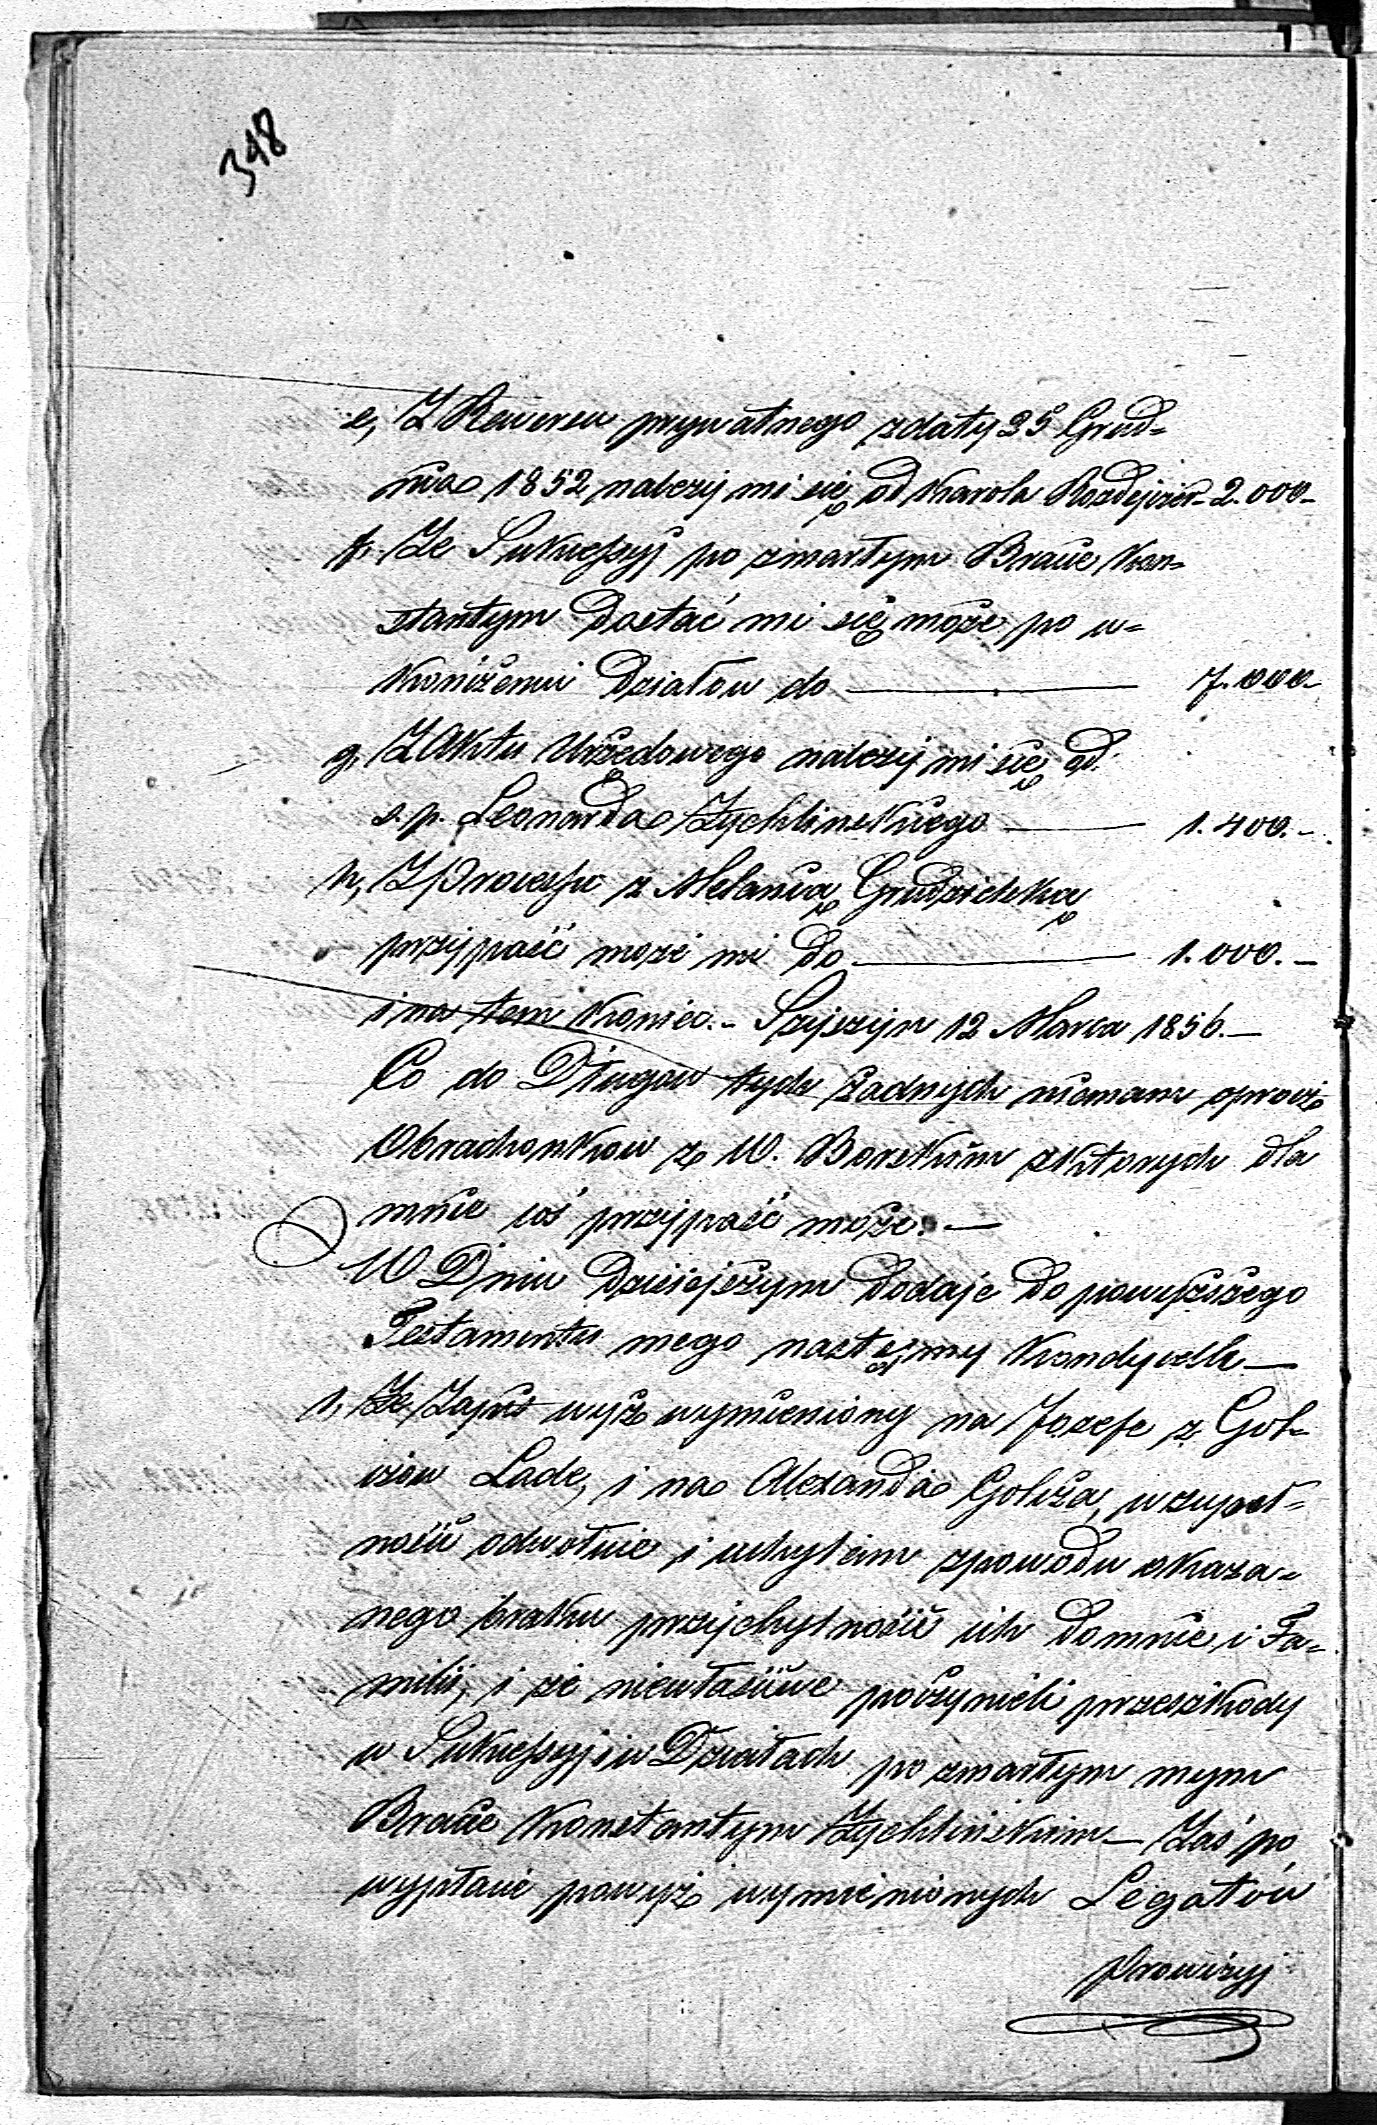 348
e, Z Rewersu prywatnego z daty 25 Grud-
nia 1852 należy mi się od Karola 2.000-
f. Ze Sukcessyj po zmarłym Bracie Kon-
stantym Dostać mi się może po u-
kończeniu Działow do — 7.000-
g, Z Aktu Urzędowego należy mi się od
s. p. Leonarda Zychlinskiego — 1.400.-
h, Z Processu z Melanią Grudzielską
przypaść może mi do — 1.000.-
i na tem koniec.- Szyszyn 12 Marca 1856.—
Co do Długow tych żadnych niemam oprocz
Obrachonkow z W. Borskim z ktorych dla
mnie coś przypaść może.—
W Dniu Dzisiejszym Dodaje Do powyższego
Testamentu mego następny Kondycell—
1, Że Zapis wyż wymieniony na Jozefe z Gol-
czow Lade, i na Alexandra Golcza, w zupeł-
ności odwołuie i uchylam z powodu okaza-
nego braku przychylności ich Do mnie, i Fa-
milii, i że niewłaściwe poczynili przeszkody
w Sukcessyj i w Działach po zmarłym mym
Bracie Konstantym Zychlińskim — Zaś po
wypłacie powyż wymienionych Legatów
Prowizyj